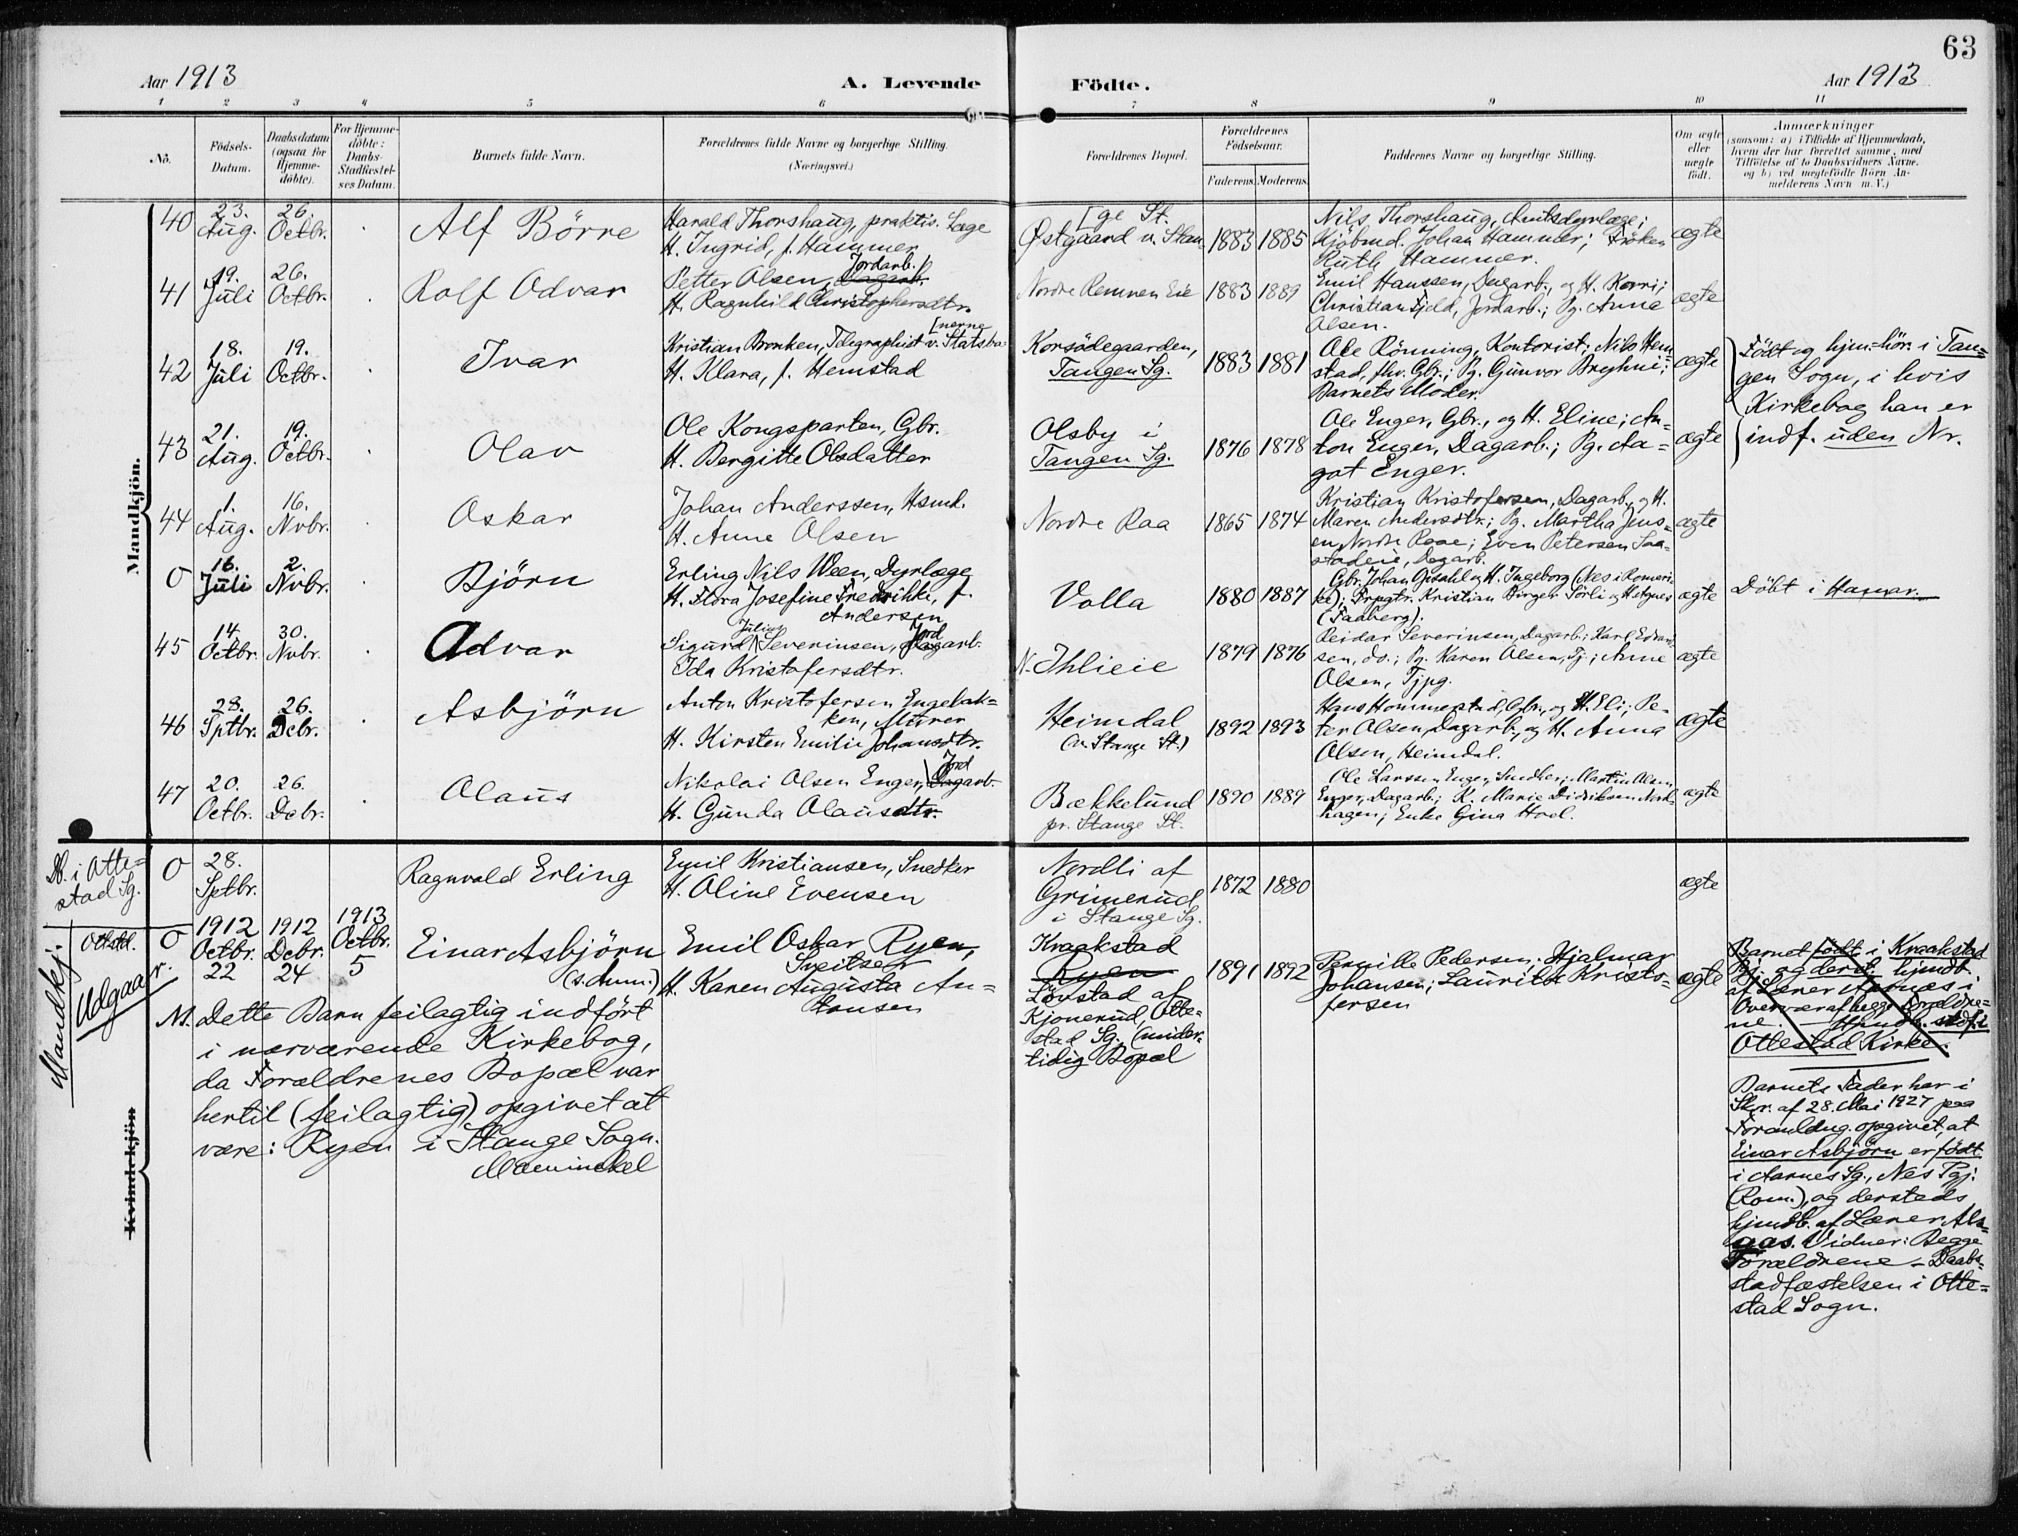 63
Aar 1913
A. Levende
Födte.
Aar 1913
1 2 3 4 5 6 7 8 9 10 11
No.
Födsels-
Datum.
Daabsdatum
(ogsaa for
Hjemme-
döbte).
For Hjemme-
döbte:
Daabs-
Stadfæstel-
ses Datum.
Barnets fulde Navn.
Forældrenes fulde Navne og borgerlige Stilling.
(Næringsvei.)
Forældrenes Bopæl.
Forældrenes
Födselsaar.
Faderens. Moderens.
Faddernes Navne og borgerlige Stilling.
Om ægte
eller
uægte
födt.
Anmærkninger
(saasom: a) i Tilfælde af Hjemmedaab,
hvem der har forrettet samme, med
Tilföielse af to Daabsvidners Navne.
og b) ved uægtefödte Börn An-
melderens Navn m. V.)
Mandkjön.
40
23.
Aug.
26.
Octbr.
Alf Börre
Harald Thorshaug, praktis. Læge
H. Ingrid, f. Hammer
[ge St.
Østgaard v. Stan-
1883 1885
Nils Thorshaug, Amtsdyrlæge;
Kjöbmd. Johan Hammer; Fröken
Ruth Hammer.
ægte
41
19.
Juli
26.
Octbr.
Rolf Odvar
Jordarb.
Petter Olsen, Dagarb.
H. Ragnhild Christophersdtr.
Nordre Remmen Eie
1883 1889
Emil Hanssen, Dagarb., og H. Korni;
Christian Fjeld, Jordarb.; Pg. Anna
Olsen.
ægte
42
18.
Juli
19.
Octbr.
Ivar
[nerne
Kristian Bronken, Telegraphist v. Statsba-
H. Klara, f. Hemstad
Korsödegaarden,
Tangen Sg.
1883 1881
Ole Rönning, Kontorist; Nils Hem-
stad, fhv. Gbr.; Pg. Gunvor Bryhni;
Barnets Moder.
ægte
Födt og hjem-hör. i Tan-
gen Sogn, i hvis
Kirkebog han er
indf. uden Nr.
43
21.
Aug.
19.
Octbr.
Olav
Ole Kongsparten, Gbr.
H. Bergitte Olsdatter
Olsby i
Tangen Sg.
1876 1878
Ole Enger, Gbr., og H. Eline; An-
ton Enger, Dagarb.; Pg. Aa-
got Enger.
ægte
44
1.
Aug.
16.
Nvbr.
Oskar
Johan Anderssen, Hsmd.
H. Anne Olsen
Nordre Raa
1865 1874
Kristian Kristofersen, Dagarb., og H.
Maren Andersdtr.; Pg. Martha Jens-
en, Nordre Raae; Even Petersen Saa-
stadeie, Dagarb.
ægte
0
16.
Juli
2.
Nvbr.
Björn
Erling Nils Ween, Dyrlæge
H. Flora Josefine Fredrikke, f.
Andersen
Volla
1880 1887
Gbr. Johan Opsahl og H. Ingeborg (Nes i Romeri-
ke); Prpgtr. Kristian Birger Sörli og H. Agnes
(Faaberg).
ægte
Döbt i Hamar.
45
14.
Octbr.
30.
Nvbr.
Advar
Julius Jord
Sigurd Severinsen, Dagarb.
Ida Kristofersdtr.
N. Ihlieie
1879 1876
Reidar Severinsen, Dagarb.; Karl Edvard-
sen, do.; Pg. Karen Olsen, Tj.; Anne
Olsen, Tjpg.
ægte
46
28.
Sptbr.
26.
Debr.
Asbjörn
Anton Kristofersen Engebak-
ken, Murer
H. Kirsten Emilie Johansdtr.
Heimdal
(v. Stange St.)
1892 1893
Hans Hommerstad, Gbr., og H. Eli; Pe-
ter Olsen, Dagarb., og H. Anna
Olsen, Heimdal.
ægte
47
20.
Octbr.
26.
Debr.
Olaus
Jord
Nikolai Olsen Enger, Dagarb.
H. Gunda Olausdtr.
Bækkelund
pr. Stange St.
1890 1889
Ole Larssen Enger, Snedker; Martin Olsen
Enger, Dagarb.; K. Marie Didriksen Nord-
hagen; Enke Gina Hoel.
ægte
Db. i Otte-
stad Sg.
0
28.
Sptbr.
Ragnvald Erling
Emil Kristiansen, Snedker
H. Oline Evensen
Nordli af
Grimerud
i Stange Sg.
1872 1880
ægte
Mandkj.
Ottstd.
Udgaar.
0
1912
Octbr.
22
1912
Debr.
24
1913
Octbr.
5
Einar Asbjörn
(s. Anm.)
Emil Oskar Ryen,
Sveitser
H. Karen Augusta An-
tonsen
Kraakstad
Ryen
Lönstad af
Kjonerud, Otte-
stad Sg. (mider-
tidig Bopæl
1891 1892
Pernille Pedersen; Hjalmar
Johansen; Laurits Kristo-
fersen
ægte
Barnet födt i Kraakstad
Pgj. og derst. hjmdt.
af Lærer Aarnæs i
Overvær af begge Forældre-
ne. - Hjmdb. stdf. i
Ottestad Kirke.
Barnets Fader har i
Skr. af 28. Mai 1927 paa
Foranldng. opgivet, at
Einar Asbjörn er födt
i Aarnes Sg., Nes Pgj.
(Rom.), og dersteds
hjmdb. af Lærer Als-
gas. Vidner: Begge
Forældrene - Daabs-
stadfæstelsen i Otte-
stad Sogn.
M. Dette Barn feilagtig indfört
i nærværende Kirkebog,
da Forældrenes Bopæl var
hertil (feilagtig) opgivet at
være: Ryen i Stange Sogn.
Kvindekjön